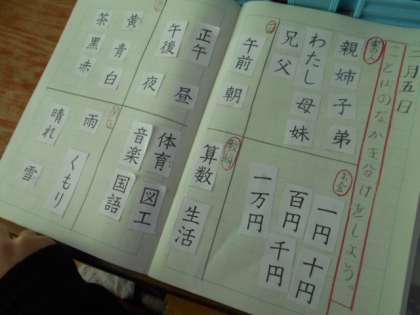 二月五日
ことばのなかま分けをしよう。
親 姉 子 弟
わたし 母 妹
兄 父
午前 朝
正午 昼
午後 夜
黄 青 白
茶 黒 赤
お金
一円 十円
百円 千円
一万円
教科
算数 生活
体育 図工
音楽 国語
雨
くもり
晴れ
雪